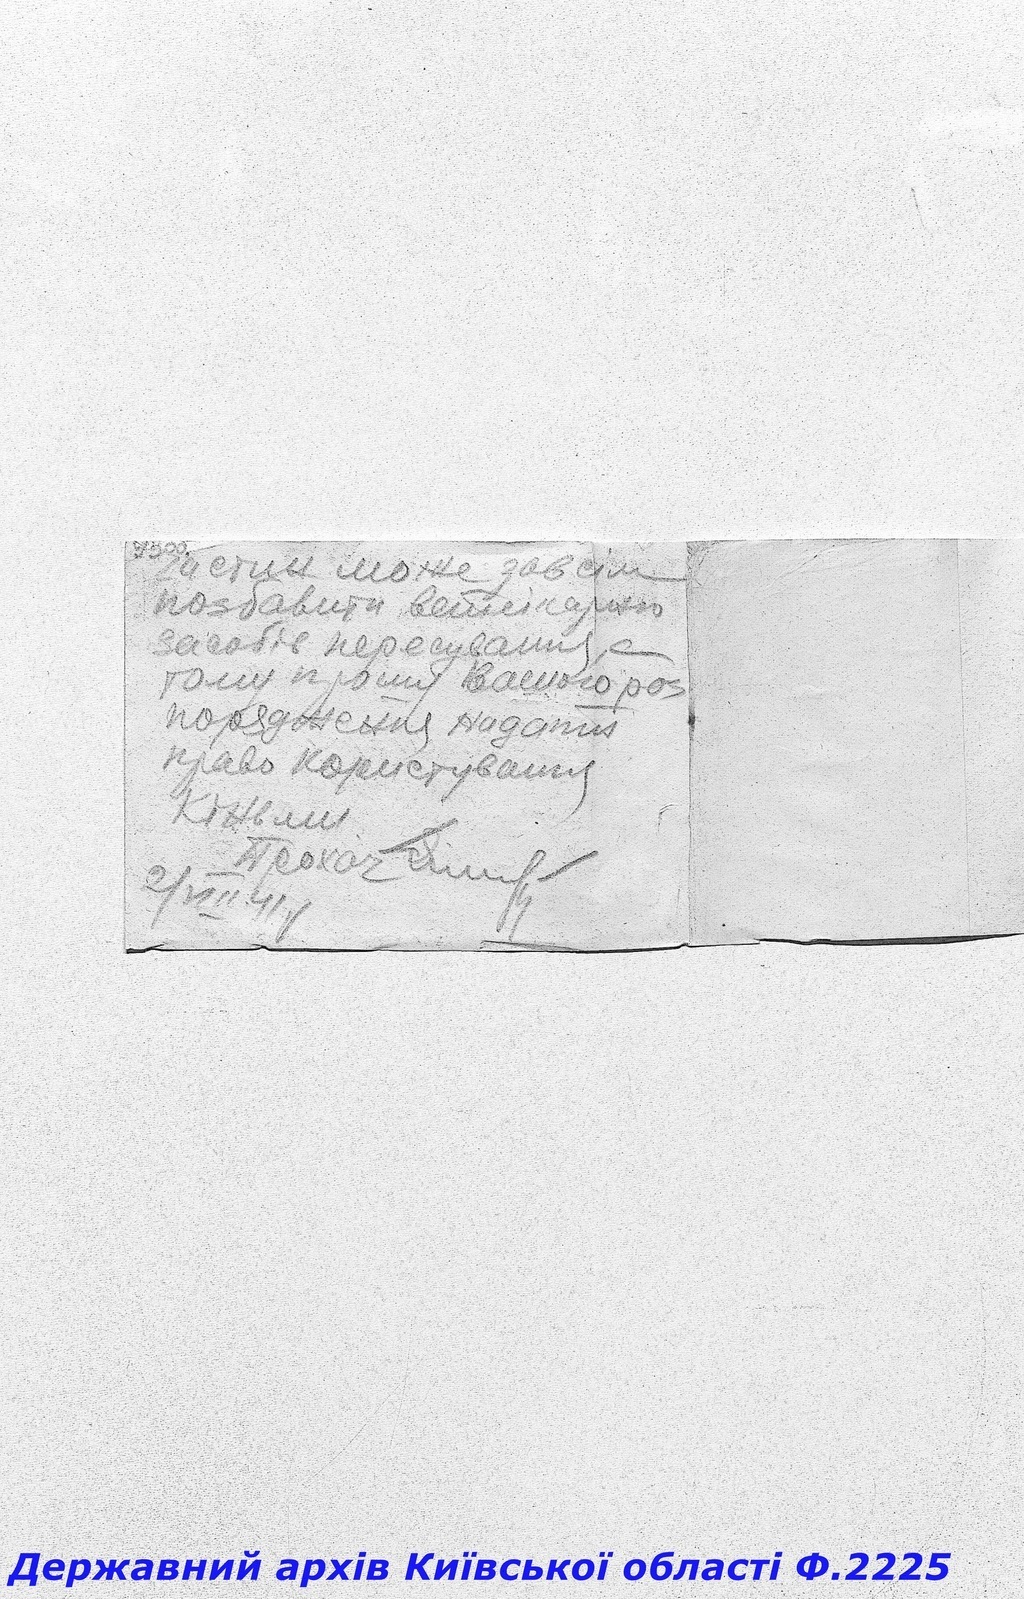 може зовсім
позбавити ветлікарню
засобів пересування, а
тому прошу Вашого роз
порядження надати
право користування
кіньми
Прохач
2/VIII 41
Державний архів Київської області Ф.2225